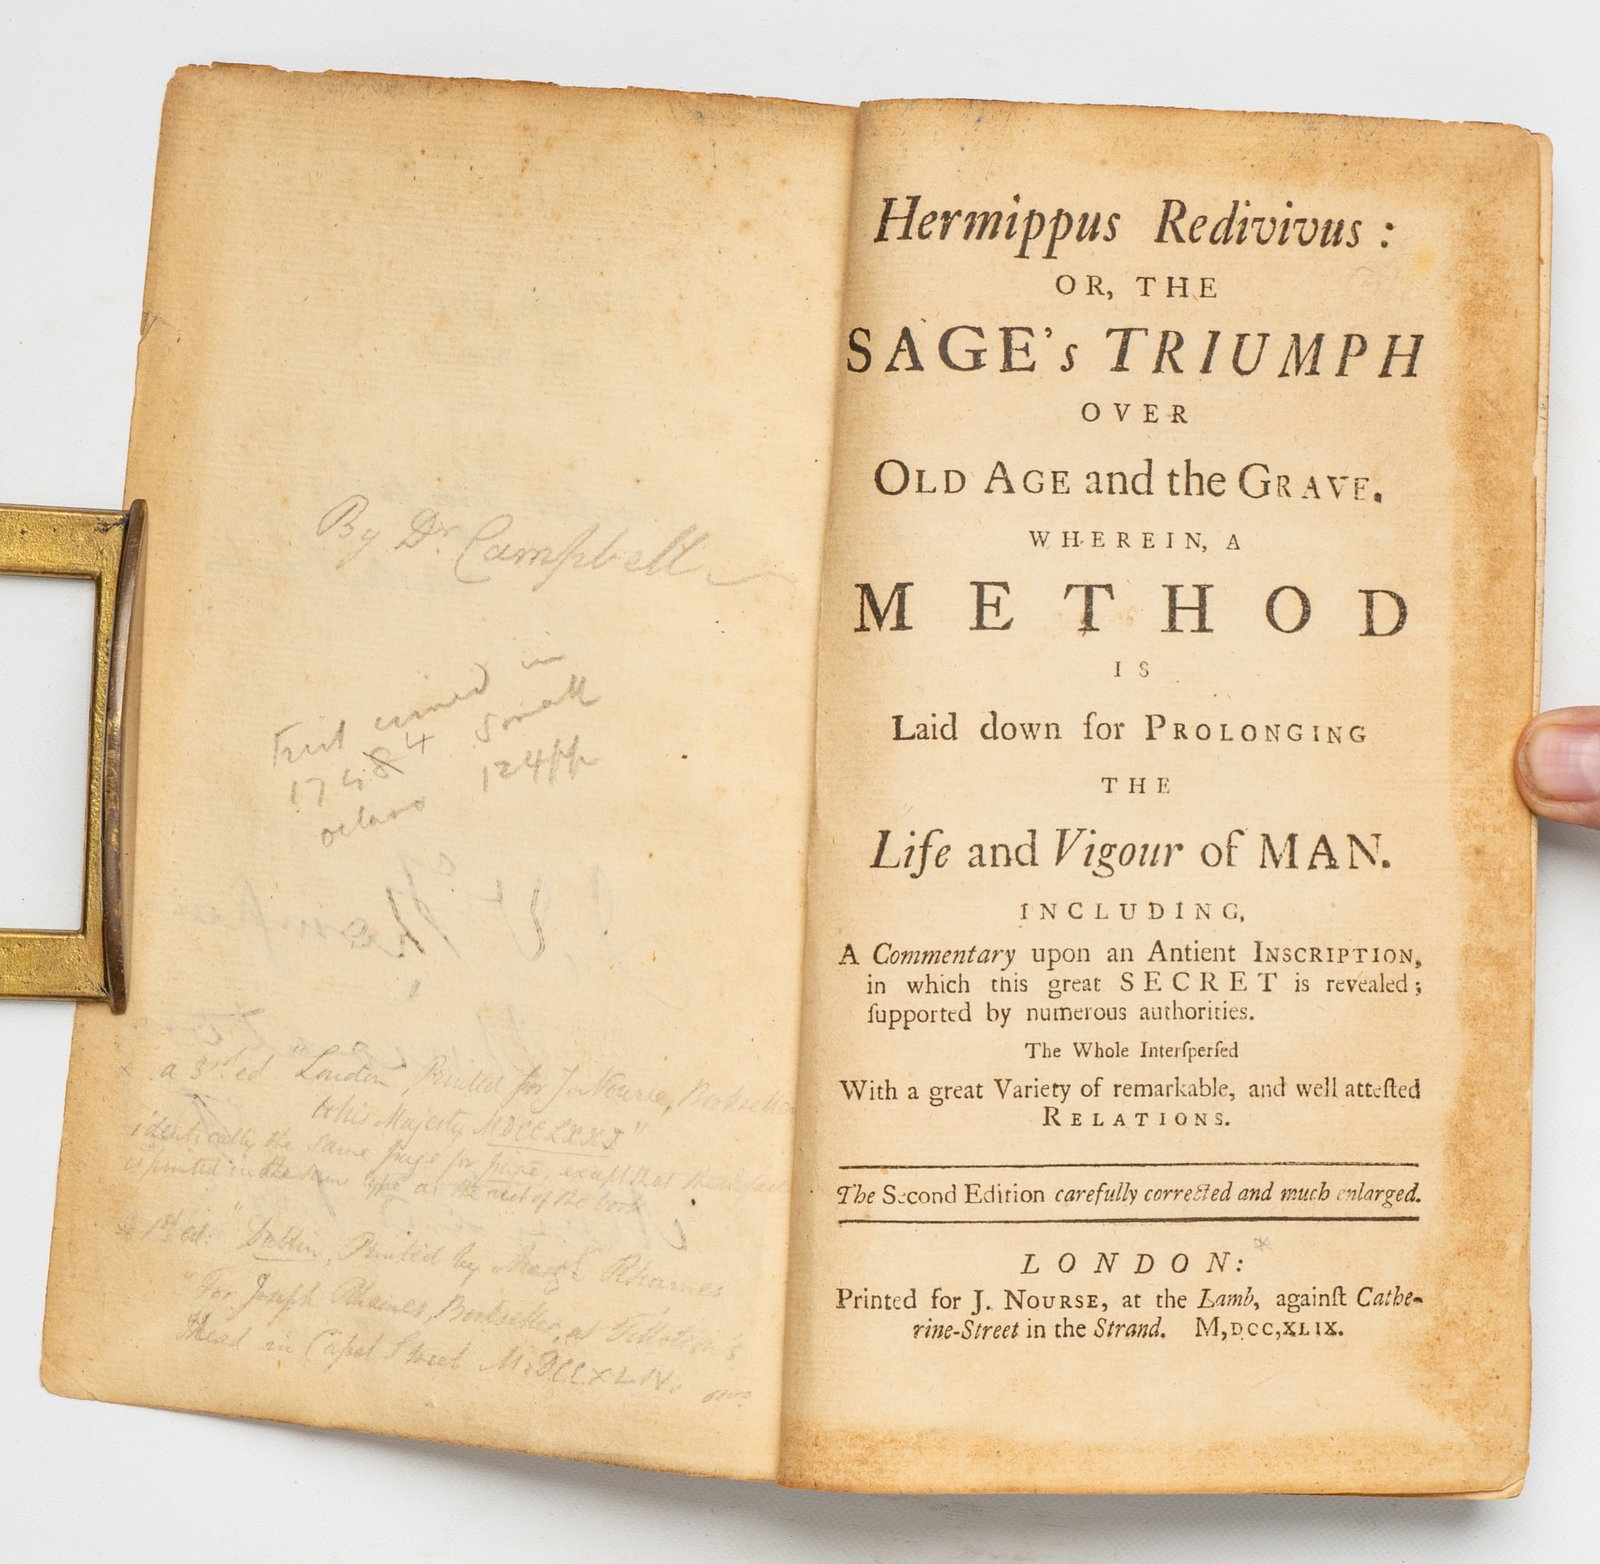 By Dr. Campbell
First
1744 small
octavo 124 pp
a 3rd ed "London, Printed for J. Nourse, Bookseller
to his Majesty MDCCLXXI"
identically the same page for page, except that the
is printed in the same type as the rest of the book
1st ed: "Dublin, Printed by Rhames
"For Joseph Rhames, Bookseller, at
Head in Capel Street MDCCXLIV.
Hermippus Redivivus :
OR, THE
SAGE's TRIUMPH
OVER
OLD AGE and the GRAVE.
WHEREIN, A
METHOD
IS
Laid down for PROLONGING
THE
Life and Vigour of MAN.
INCLUDING,
A Commentary upon an Antient INSCRIPTION,
in which this great SECRET is revealed ;
ſupported by numerous authorities.
The Whole Interſperſed
With a great Variety of remarkable, and well atteſted
RELATIONS.
The Second Edition carefully corrected and much enlarged.
LONDON: *
Printed for J. NOURSE, at the Lamb, againſt Cathe-
rine-Street in the Strand. M,DCC,XLIX.